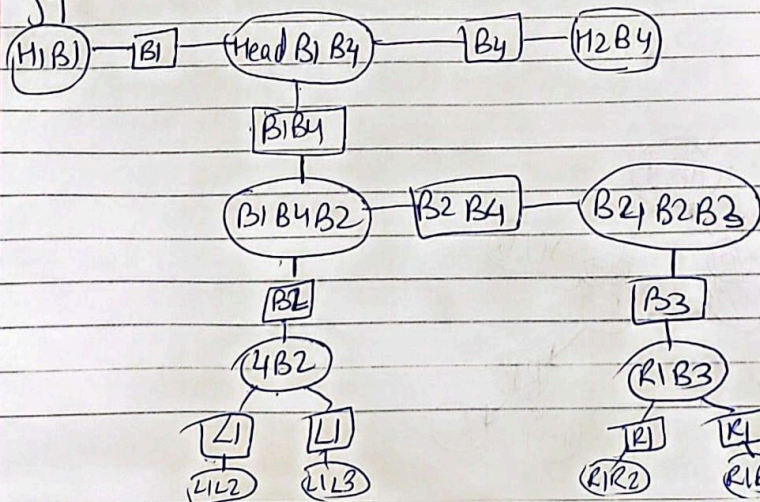 H1B1 B1 Head B1 B4 B4 H2B4
B1B4
B1B4B2 B2 B4 B21B2B3
B2 B3
4B2 R1B3
L1 L1 R1 R1
L1L2 L1L3 R1R2